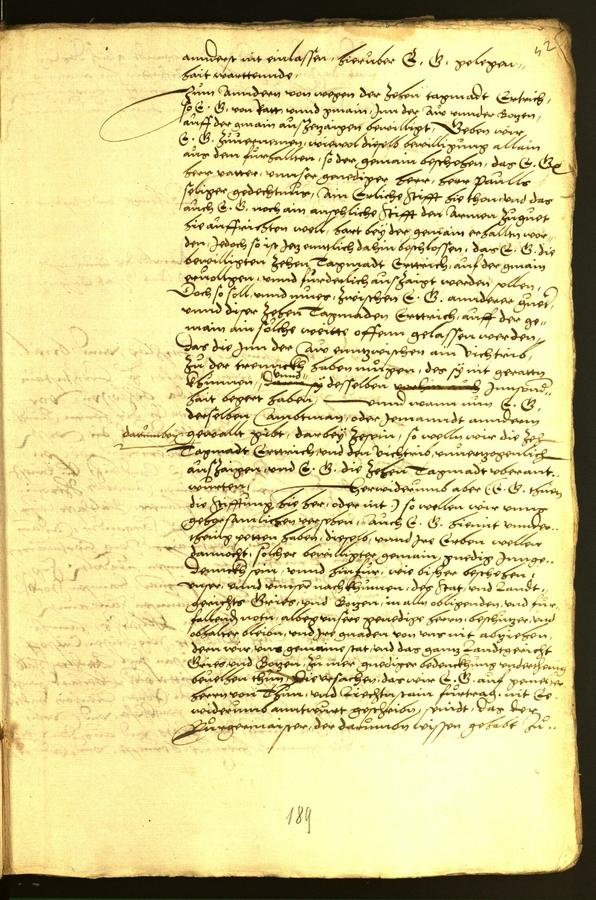 annderst nit einlassen, hieruber E. G. gelegen-
hait warttennde.
Zum Anndern von wegen der Zehen tagmadt Ertrich,
so E. G. von statt vnnd gmain, Inn der Aw vnnder Bozen,
auff der gmain auszezaigen bewilligt, Geben wir
E. G. zuuernemen, wiewol dieselb bewilligung allain
aus dem furhalten, so der gemain beschehen, das E. G.
herr vatter, vnnser genediger herr, herr Paulls
seliger gedechtnus, Ain Erliche Stifft hie thon, vnd das
auch E. G. noch ain ansehliche Stifft den Armen zuguet
hie auffrichten well, hart bey der gemain erhalltn wor-
den, Jedoch so ist Jez enntlich dahin beschlossen, das E. G. die
bewilligten Zehen Tagmadt Erttrich, auf der gmain
ervolgen, vnnd furderlich auszaigt werden sollen,
Doch so soll, vnnd mues, zwischen E. G. annderer guet,
vnnd diser Zehen Tagmaden Erttrich, auff der ge-
main ain solche weitte offenn gelassen werden,
das die Inn der Aw enntzwischen ain Vichtrib,
zu der trennckh haben mugen, des sy nit geratten
khunnen, vnnd desselben Innsonnd-
hait begert haben, vnnd wann nun E. G.
derselben Ambtman, oder Jemanndt anndern
darumben gewalt gibt, darbey zesein, so welln wir die zehen
Tagmadt Erttrich, vnd den Vichtrib, vnuerzogenlich
auszaigen, vnd E. G. die Zehen Tagmadt vberant-
wurten, Herwiderumb aber (E. G. thuen
die Stifftung hie her, oder nit) so wellen wir vnns
gehorsamlichen versehen, Auch E. G. hiemit vnnder-
thenig gepetten haben, dieselb, vnnd Ire Erben wellen
dannocht, solher bewilligter gemain gnedig Innge-
dennckh sein, vnnd hinfur, wie bisher beschehen,
vnser, vnnd vnnser nachkhumen, des Stat, vnd Lanndt-
gerichts Gries, vnd Bozen, in aln obligenden, vnd fur-
fallend notn, albeg vnsere genedige herrn, beschuzer, vnd
obhalter bleibn, vnd Ire gnaden von vns nit abziehen,
dem wir, vns, gemaine stat, vnd das ganz Landtgericht
Gries, vnd Bozen, zu iner gnediger bedennckhung vnderthenig
beuelhen thun, Die vrsachen, das wir E. G. auf
herrn von Thun, vnd Liechtnstain furtrag, mit Ge-
widerumb anntwurt geschriben, seindt, das der
Burgermaister, der darumbn wissen gehabt, zu-
189